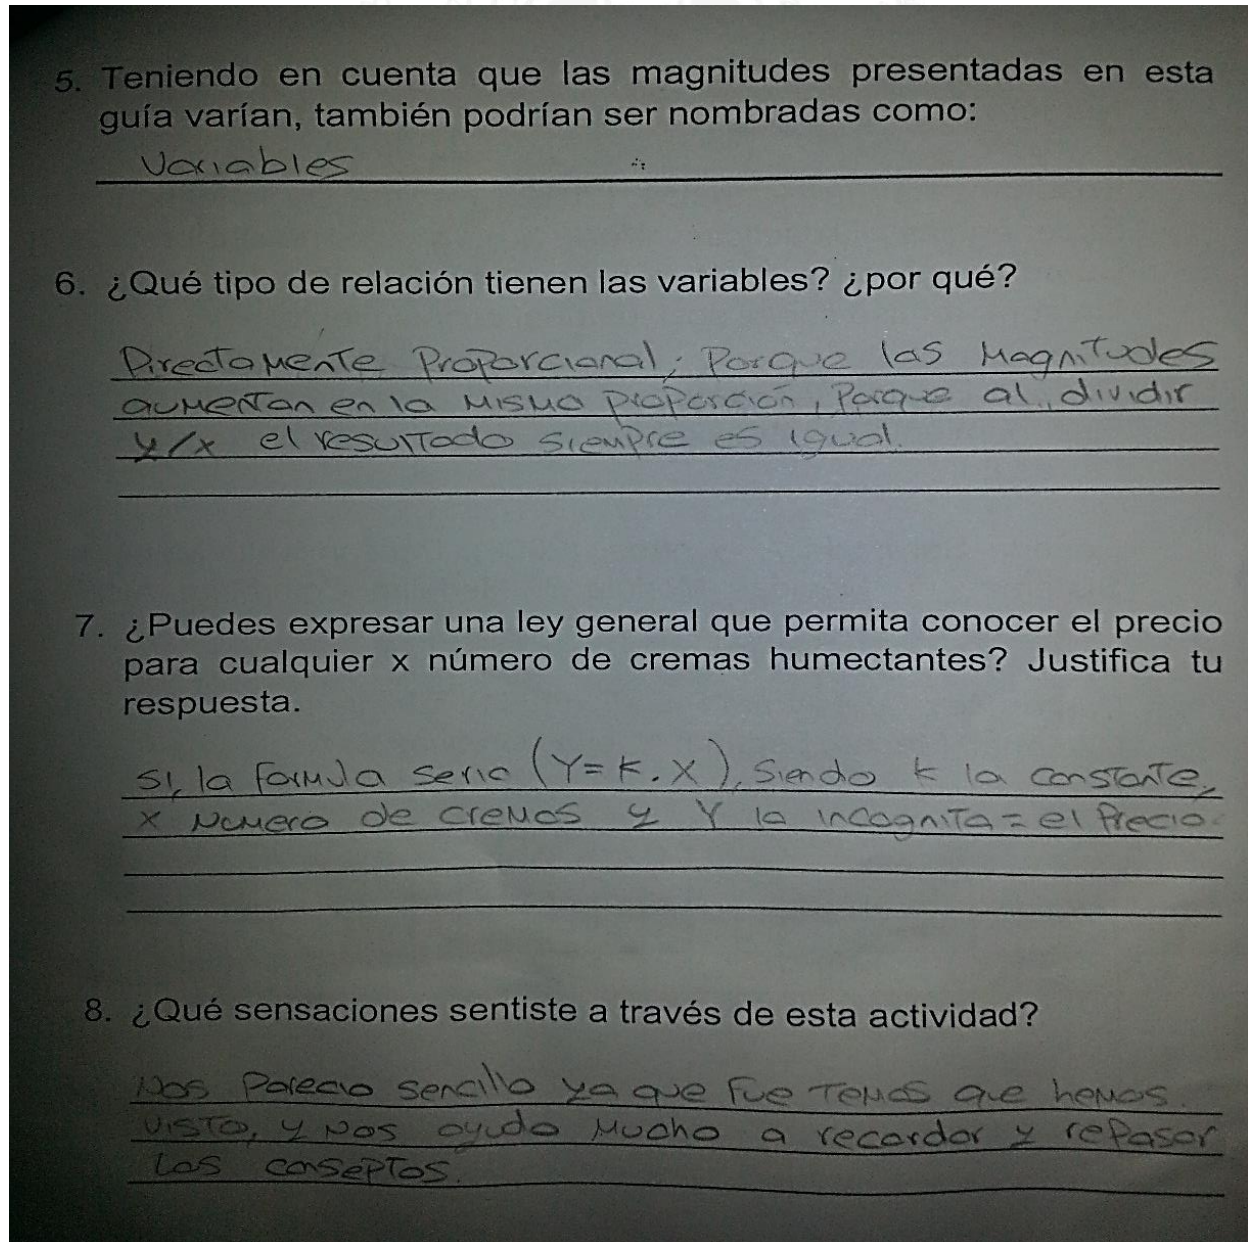 5. Teniendo en cuenta que las magnitudes presentadas en esta
guía varían, también podrían ser nombradas como:
Variables
6. ¿Qué tipo de relación tienen las variables? ¿por qué?
Directamente Proporcional, Porque las Magnitudes
aumentan en la misma proporción, Porque al dividir
y/x el resultado siempre es igual.
7. ¿Puedes expresar una ley general que permita conocer el precio
para cualquier x número de cremas humectantes? Justifica tu
respuesta.
Si, la formula seria (Y=K.X), Siendo K la constante,
X Numero de cremas y Y la incognita = el Precio.
8. ¿Qué sensaciones sentiste a través de esta actividad?
Nos Parecio sencillo ya que fue Temas que hemos
visto, y nos ayudo Mucho a recordar y repasar
Los conseptos.